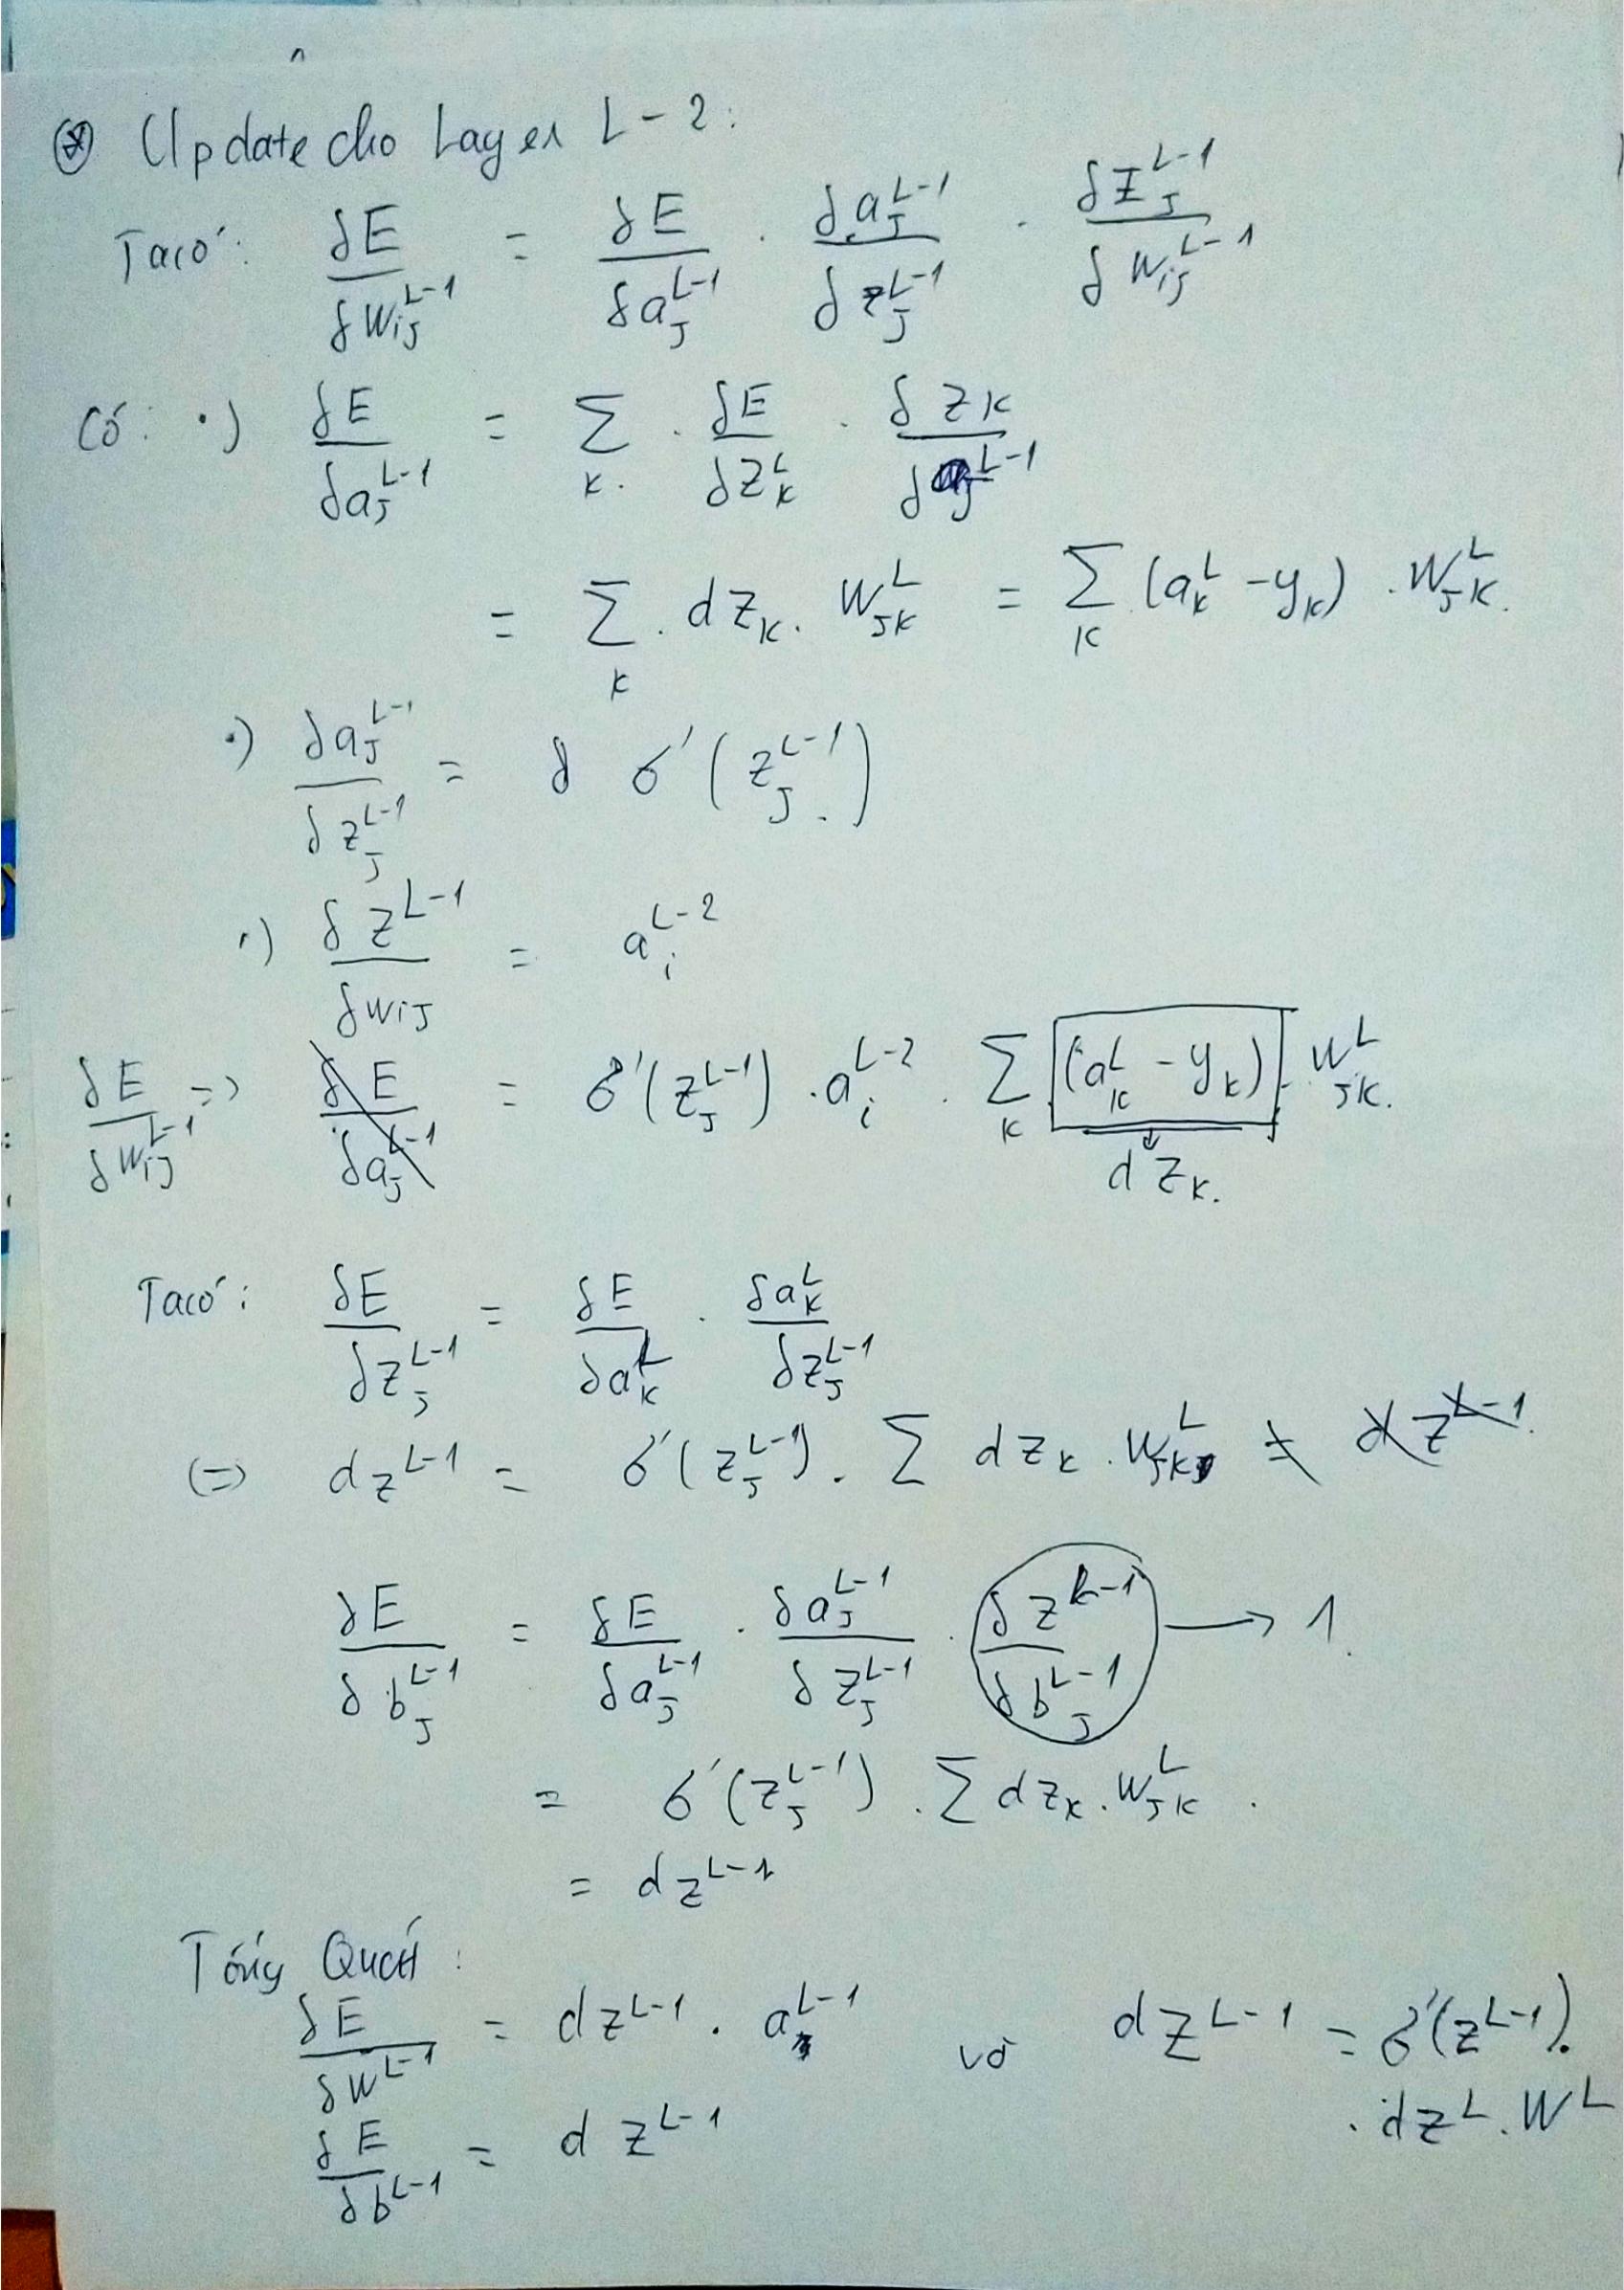 ⊛ Update cho Layer L-2:
Ta có: δE/δW_ij^{L-1} = δE/δa_J^{L-1} . δa_J^{L-1}/δz_J^{L-1} . δZ_J^{L-1}/δW_ij^{L-1}
Có: •) δE/δa_J^{L-1} = Σ_K . δE/δZ_K^L . δZ_K/δa_J^{L-1}
= Σ_K . dZ_K . W_JK^L = Σ_K (a_K^L - y_K) . W_JK^L.
•) δa_J^{L-1}/δz_J^{L-1} = δ σ'(z_J^{L-1})
•) δz^{L-1}/δw_ij = a_i^{L-2}
δE/δW_ij^{L-1} => δE/δa_J^{L-1} = σ'(z_J^{L-1}) . a_i^{L-2} . Σ_K (a_K^L - y_K) . W_JK^L.
dZ_K.
Ta có: δE/δz_J^{L-1} = δE/δa_K^L . δa_K^L/δz_J^{L-1}
(=) dz^{L-1} = σ'(z_J^{L-1}) . Σ dz_K . W_JK^L = dz^{L-1}.
δE/δb_J^{L-1} = δE/δa_J^{L-1} . δa_J^{L-1}/δz_J^{L-1} . δz^{L-1}/δb_J^{L-1} → 1.
= σ'(z_J^{L-1}) . Σ dz_K . W_JK^L .
= dz^{L-1}
Tổng Quát:
δE/δW^{L-1} = dz^{L-1} . a^{L-1} và dz^{L-1} = σ'(z^{L-1}).
. dz^L . W^L
δE/δb^{L-1} = dz^{L-1}